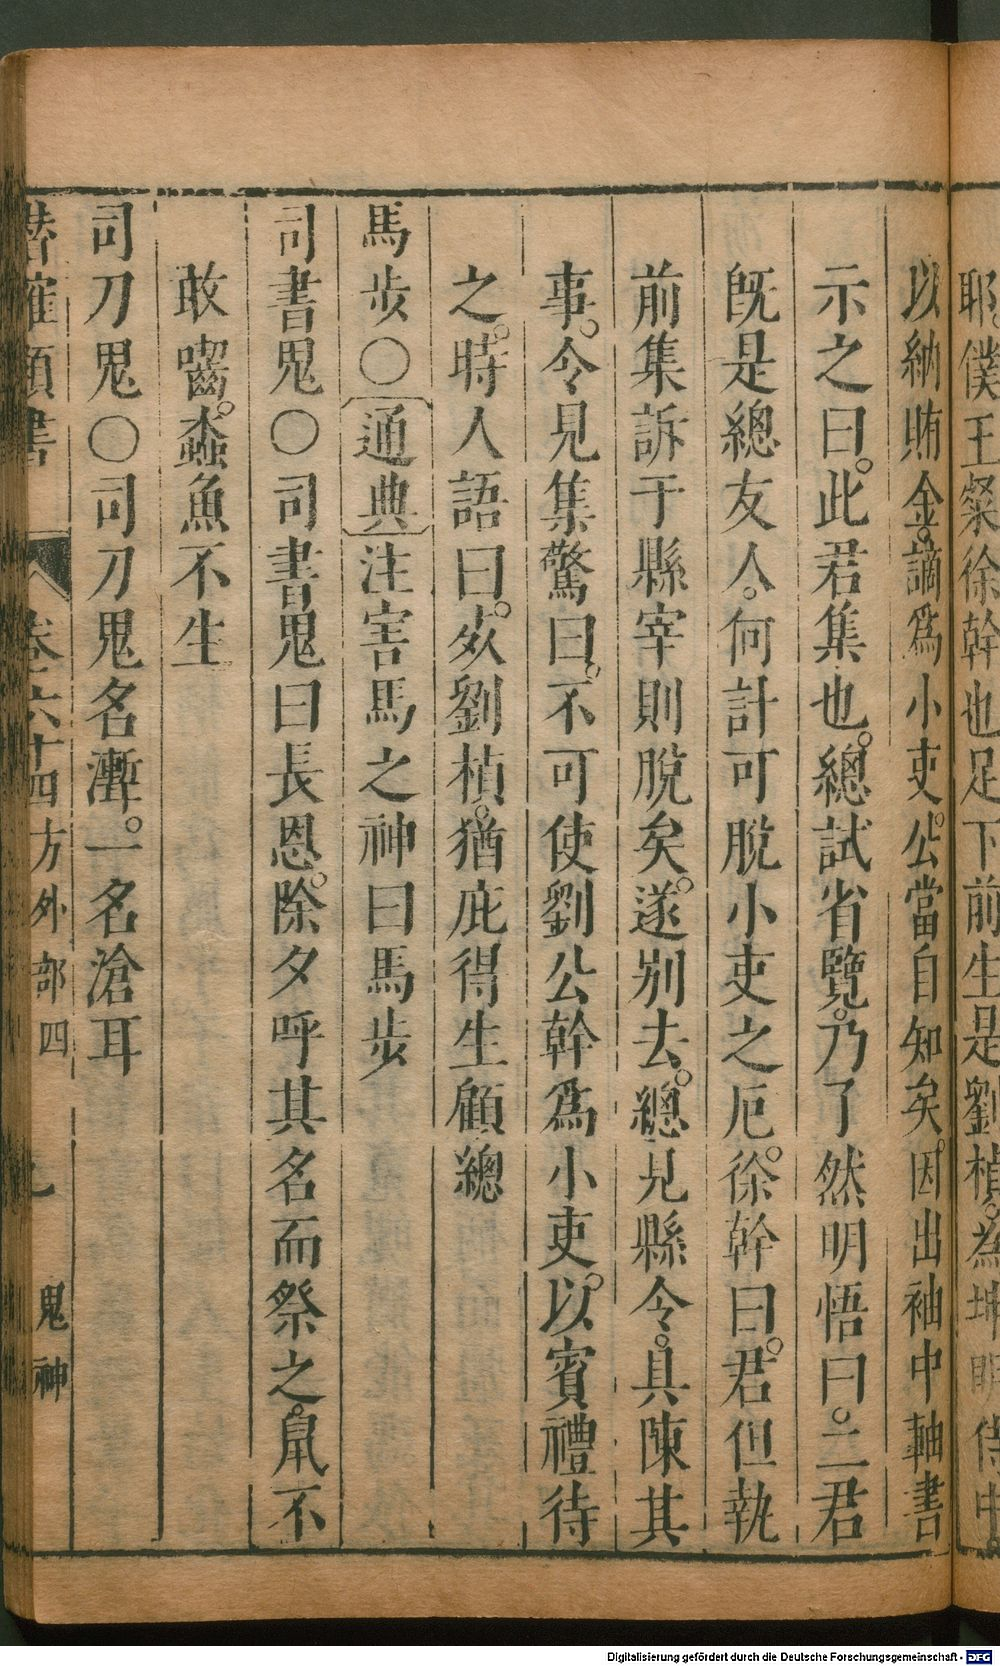 耶僕王粲徐幹也足下前生是劉楨為坤明侍中
以納賄金謫爲小吏公當自知矣因出袖中軸書
示之曰此君集也總試省覽乃了然明悟曰二君
旣是總友人何計可脫小吏之厄徐幹曰君但執
前集訴于縣宰則脫矣遂別去總見縣令具陳其
事令見集驚曰不可使劉公幹爲小吏以賓禮待
之時人語曰死劉楨猶庇得生顧總
馬步○通典注害馬之神曰馬步
司書鬼○司書鬼曰長恩除夕呼其名而祭之鼠不
敢嚙蠹魚不生
司刀鬼○司刀鬼名漸一名滄耳
潛確類書 卷六十四方外部四 鬼神
Digitalisierung gefördert durch die Deutsche Forschungsgemeinschaft - DFG